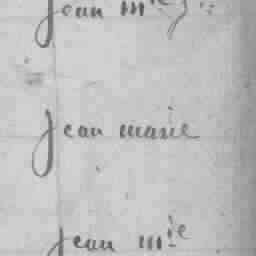 jean mie
jean marie
jean mie